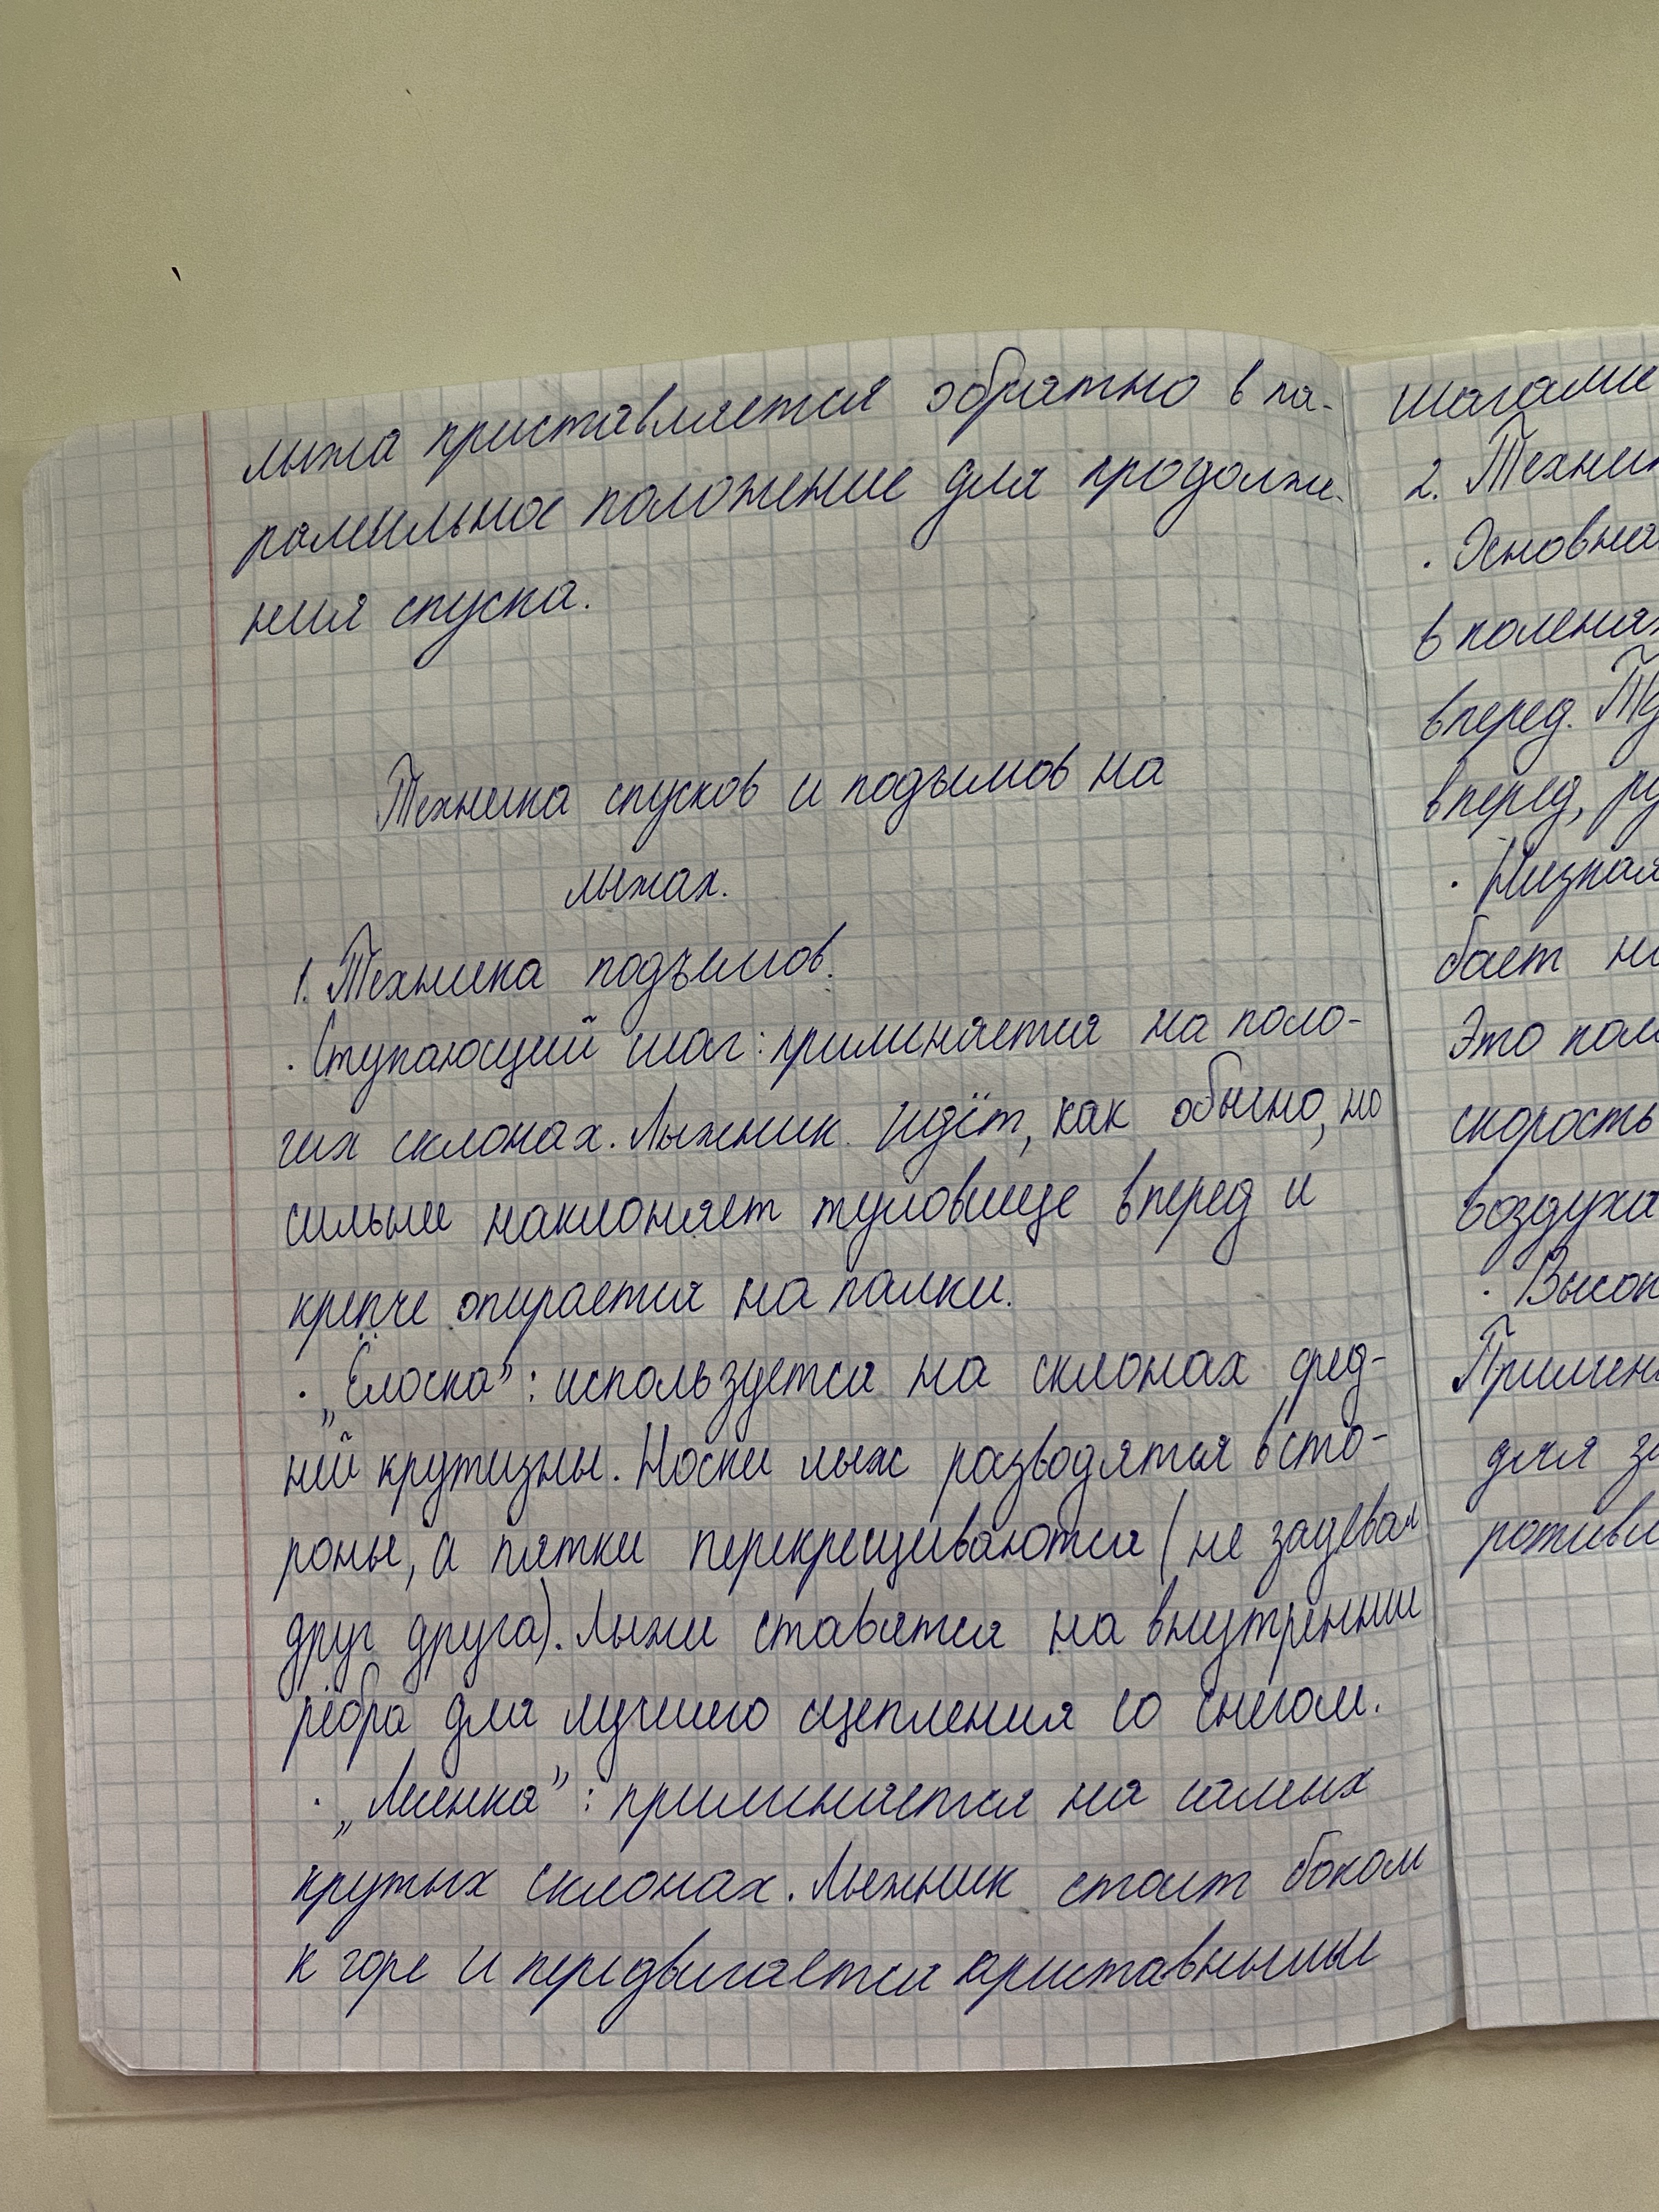 лыжа приставляется обратно в па-
ралельное положение для продолже-
ния спуска.
Техника спусков и подъмов на
лыжах.
1. Техника подъемов.
· Ступающий шаг: применяется на поло-
гих склонах. Лыжник идёт, как обычно, но
сильнее наклоняет туловище вперед и
крепче опирается на палки.
· „Ёлоска”: используется на склонах сред-
ней крутизны. Носки лыж разводятся в сто-
роны, а пятки перекрещиваются (не задевая
друг друга). Лыжи ставятся на внутренние
рёбра для лучшего сцепления со снегом.
· „Лесенка”: применяется на самых
крутых склонах. Лыжник стоит боком
к горе и передвигается приставными
шагами
2. Техни
· Основна
в коленях
вперед. Ту
вперед, ру
· Низкая
бает но
Это пом
скорость
воздуха
· Высок
Примен
для за
ротивл